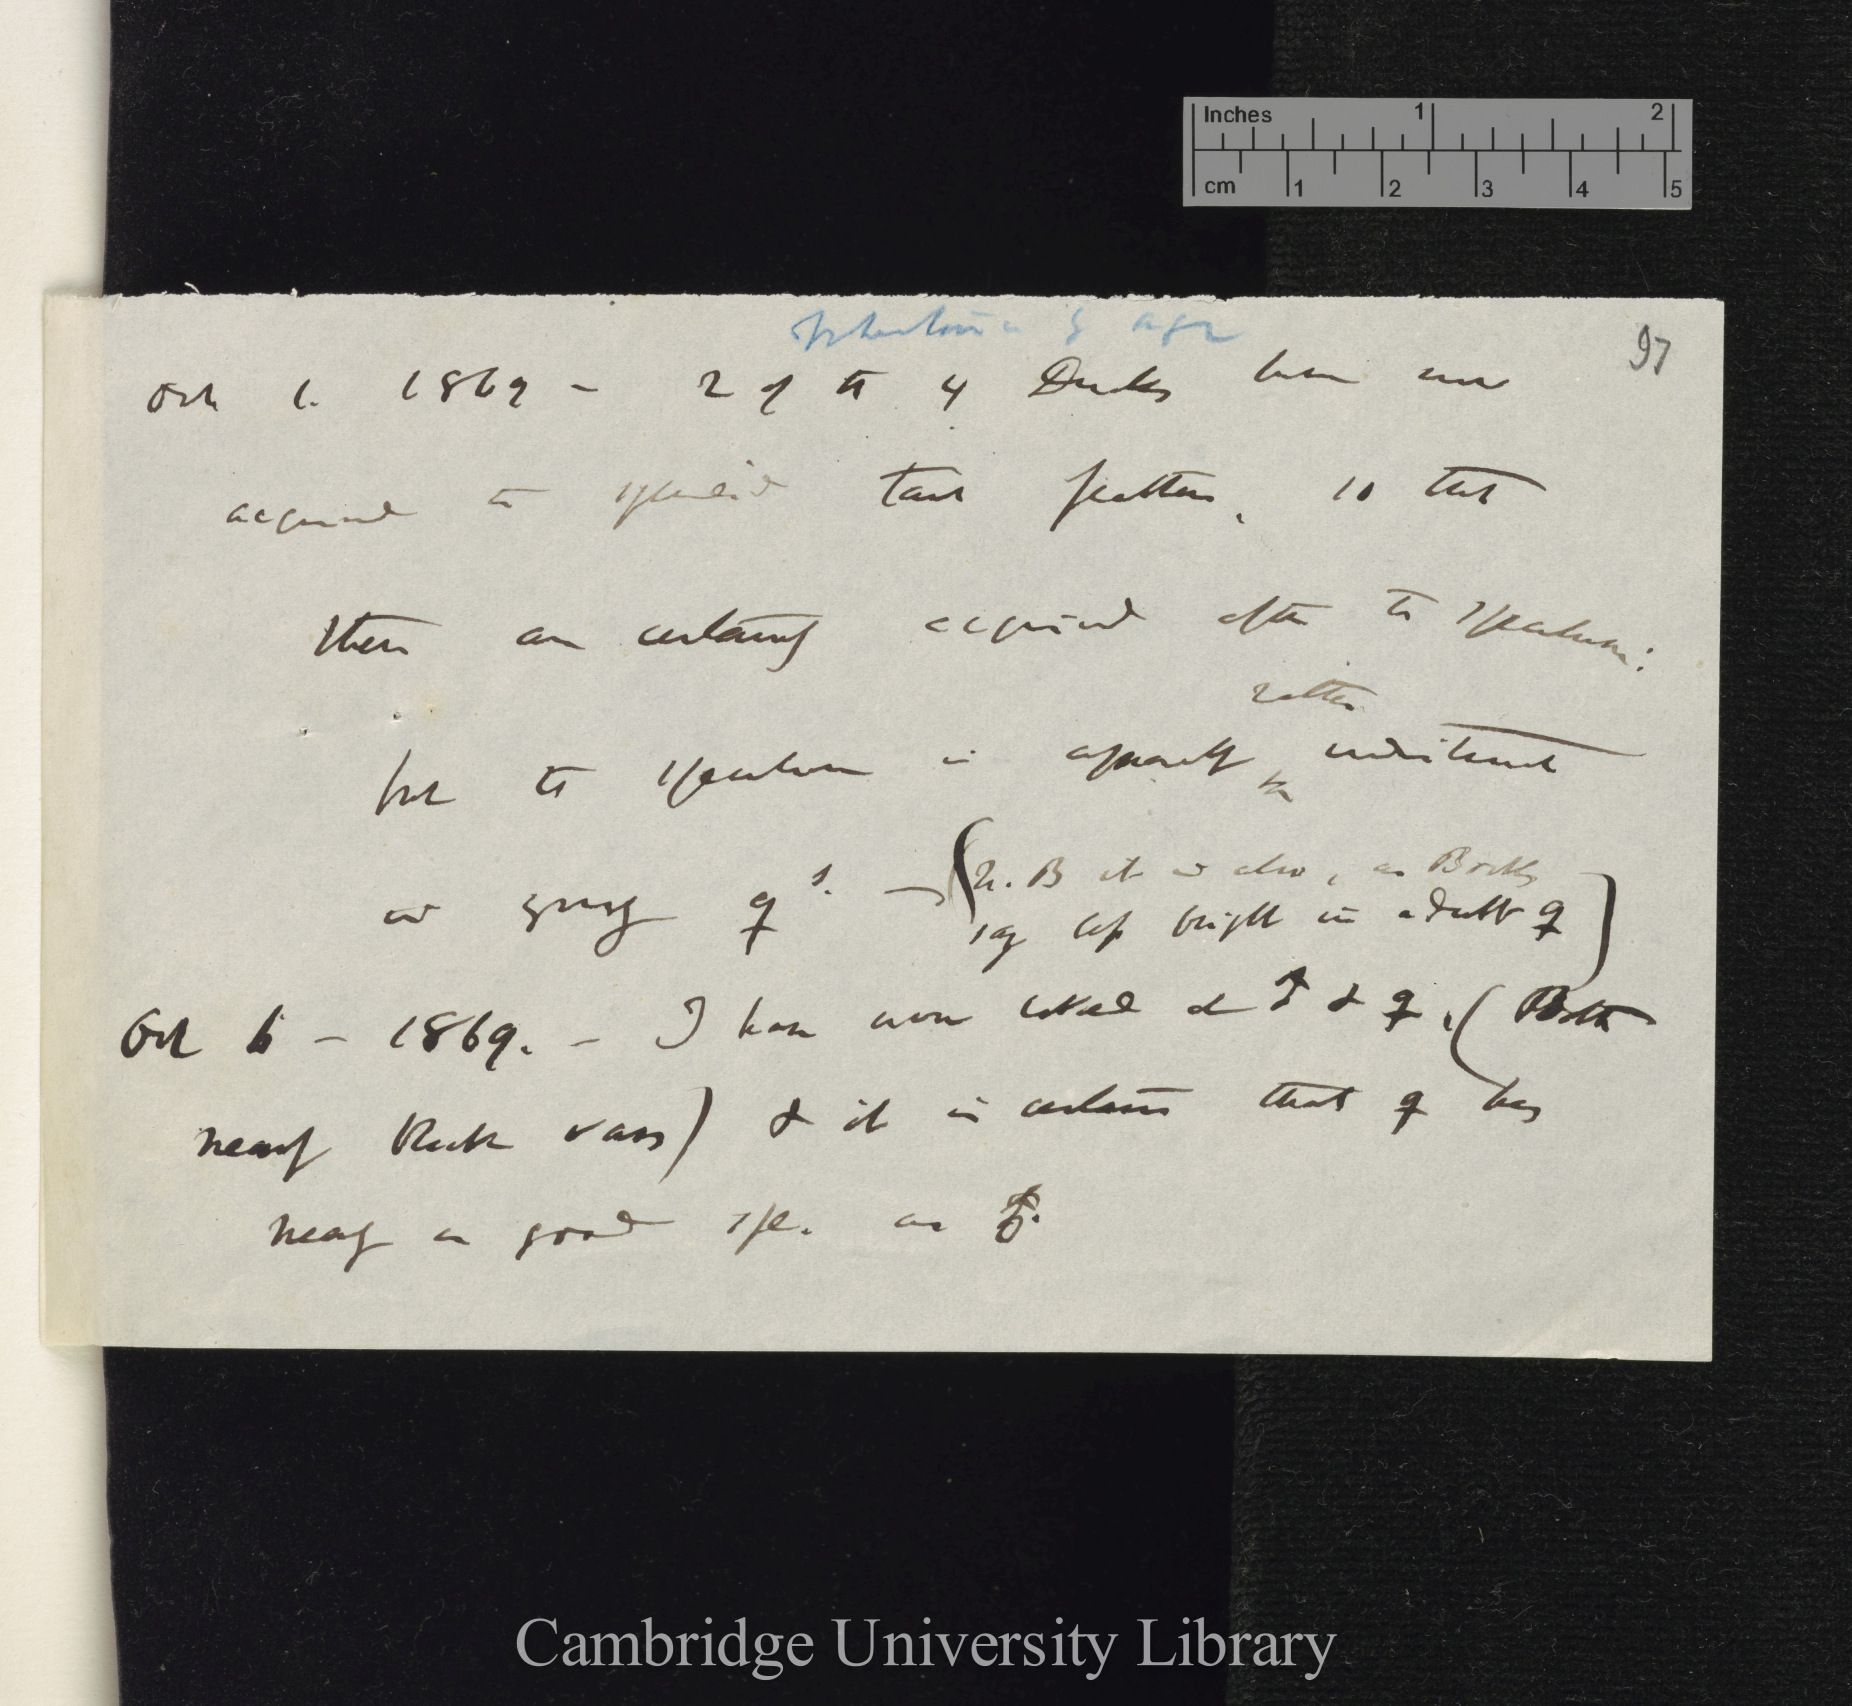 Inches 1 2
cm 1 2 3 4 5
97
Oct 1. 1869 – 2 of the 4 Ducks have now
acquired the splendid tail feathers, so that
these are certainly acquired after the speculum:
but the speculum is apparently rather indistinct
in young ♀s. — (N.B it is also, as Books
say less bright in adult ♀)
Oct 6 – 1869. – I have now looked at ♂ & ♀, (Both
nearly Black vars) & it is certain that ♀ has
nearly as good spe. as ♂.
Cambridge University Library